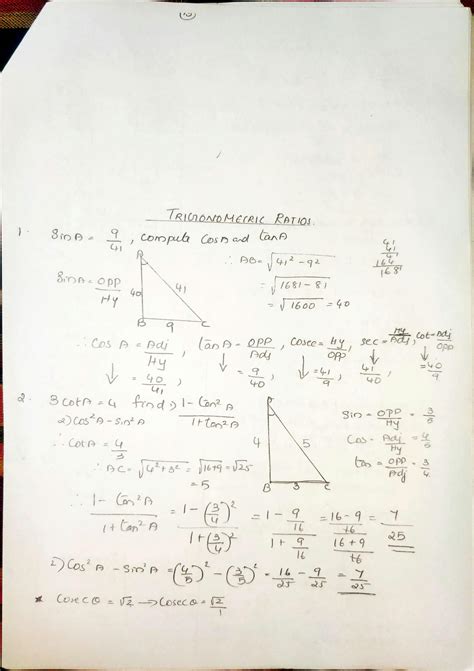 TRIGONOMETRIC RATIOS.
1. Sin A = 9/41, compute Cos A and tan A
Sin A = OPP/Hy
A
40
41
B 9 C
∴ AB = √41² - 9²
= √1681 - 81
= √1600 = 40
41
41
164
1681
∴ Cos A = Adj/Hy, tan A = OPP/Adj, cosec = Hy/OPP, sec = Hy/Adj, cot = Adj/OPP
↓ = 40/41 ↓ = 9/40 ↓ = 41/9, ↓ 41/40, ↓ = 40/9
2. 3 cot A = 4 find 1) 1 - tan² A / 1 + tan² A
2) Cos² A - Sin² A
∴ Cot A = 4/3
∴ AC = √4² + 3² = √16+9 = √25
= 5
4
5
B 3 C
Sin = OPP/Hy = 3/5
Cos = Adj/Hy = 4/5
tan = OPP/Adj = 3/4
∴ 1 - tan² A / 1 + tan² A = 1 - (3/4)² / 1 + (3/4)² = 1 - 9/16 / 1 + 9/16 = 16 - 9/16 / 16 + 9/16 = 7/25
2) Cos² A - Sin² A = (4/5)² - (3/5)² = 16/25 - 9/25 = 7/25
* Cosec θ = √2 → Cosec θ = √2/1